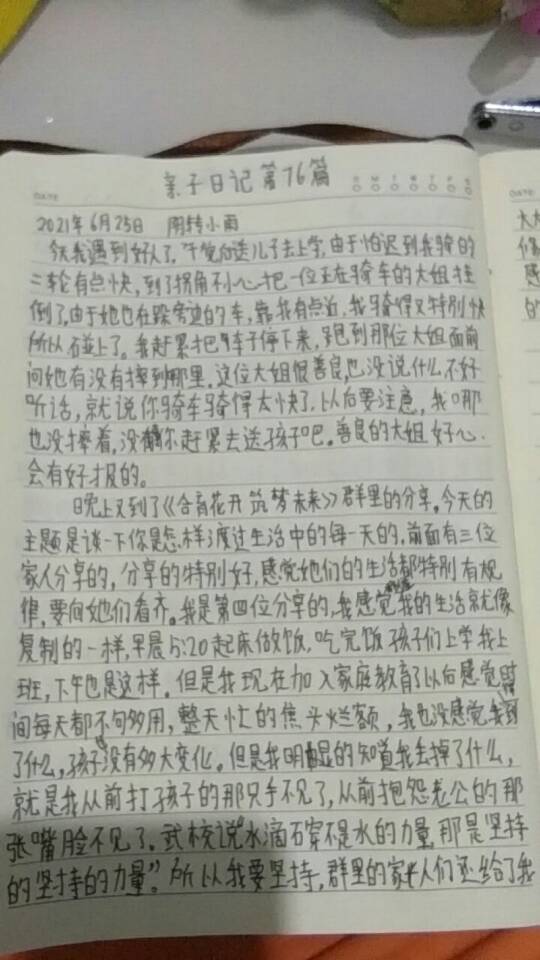 亲子日记第76篇
DATE
S M T W T F S
2021年6月25日 阴转小雨
今天我遇到好人了,午觉后送儿子去上学,由于怕迟到我骑的
三轮有点快,到了拐角不小心把一位正在骑车的大姐挂
倒了,由于她也在躲旁边的车,靠我有点近,我骑得又特别快
所以碰上了。我赶紧把车子停下来,跑到那位大姐面前
问她有没有摔到哪里,这位大姐很善良也没说什么不好
听话,就说你骑车骑得太快了,以后要注意,我哪
也没摔着,没事你赶紧去送孩子吧。善良的大姐好心
会有好报的。
晚上又到了《合育花开 筑梦未来》群里的分享。今天的
主题是谈一下你是怎样度过生活中的每一天的,前面有三位
家人分享的,分享的特别好,感觉她们的生活都特别有规
律,要向她们看齐。我是第四位分享的,我感觉我的生活就像
复制的一样,早晨5:20起床做饭,吃完饭孩子们上学我上
班,下午也是这样。但是我现在加入家庭教育了以后感觉时
间每天都不够用,整天忙的焦头烂额,我也没感觉我到
了什么,孩子也没有多大变化。但是我明显的知道我丢掉了什么,
就是我从前打孩子的那只手不见了,从前抱怨老公的那
张嘴脸不见了。武校说"水滴石穿不是水的力量,那是坚持
的坚持的力量"。所以我要坚持,群里的家人们还给了我
DATE